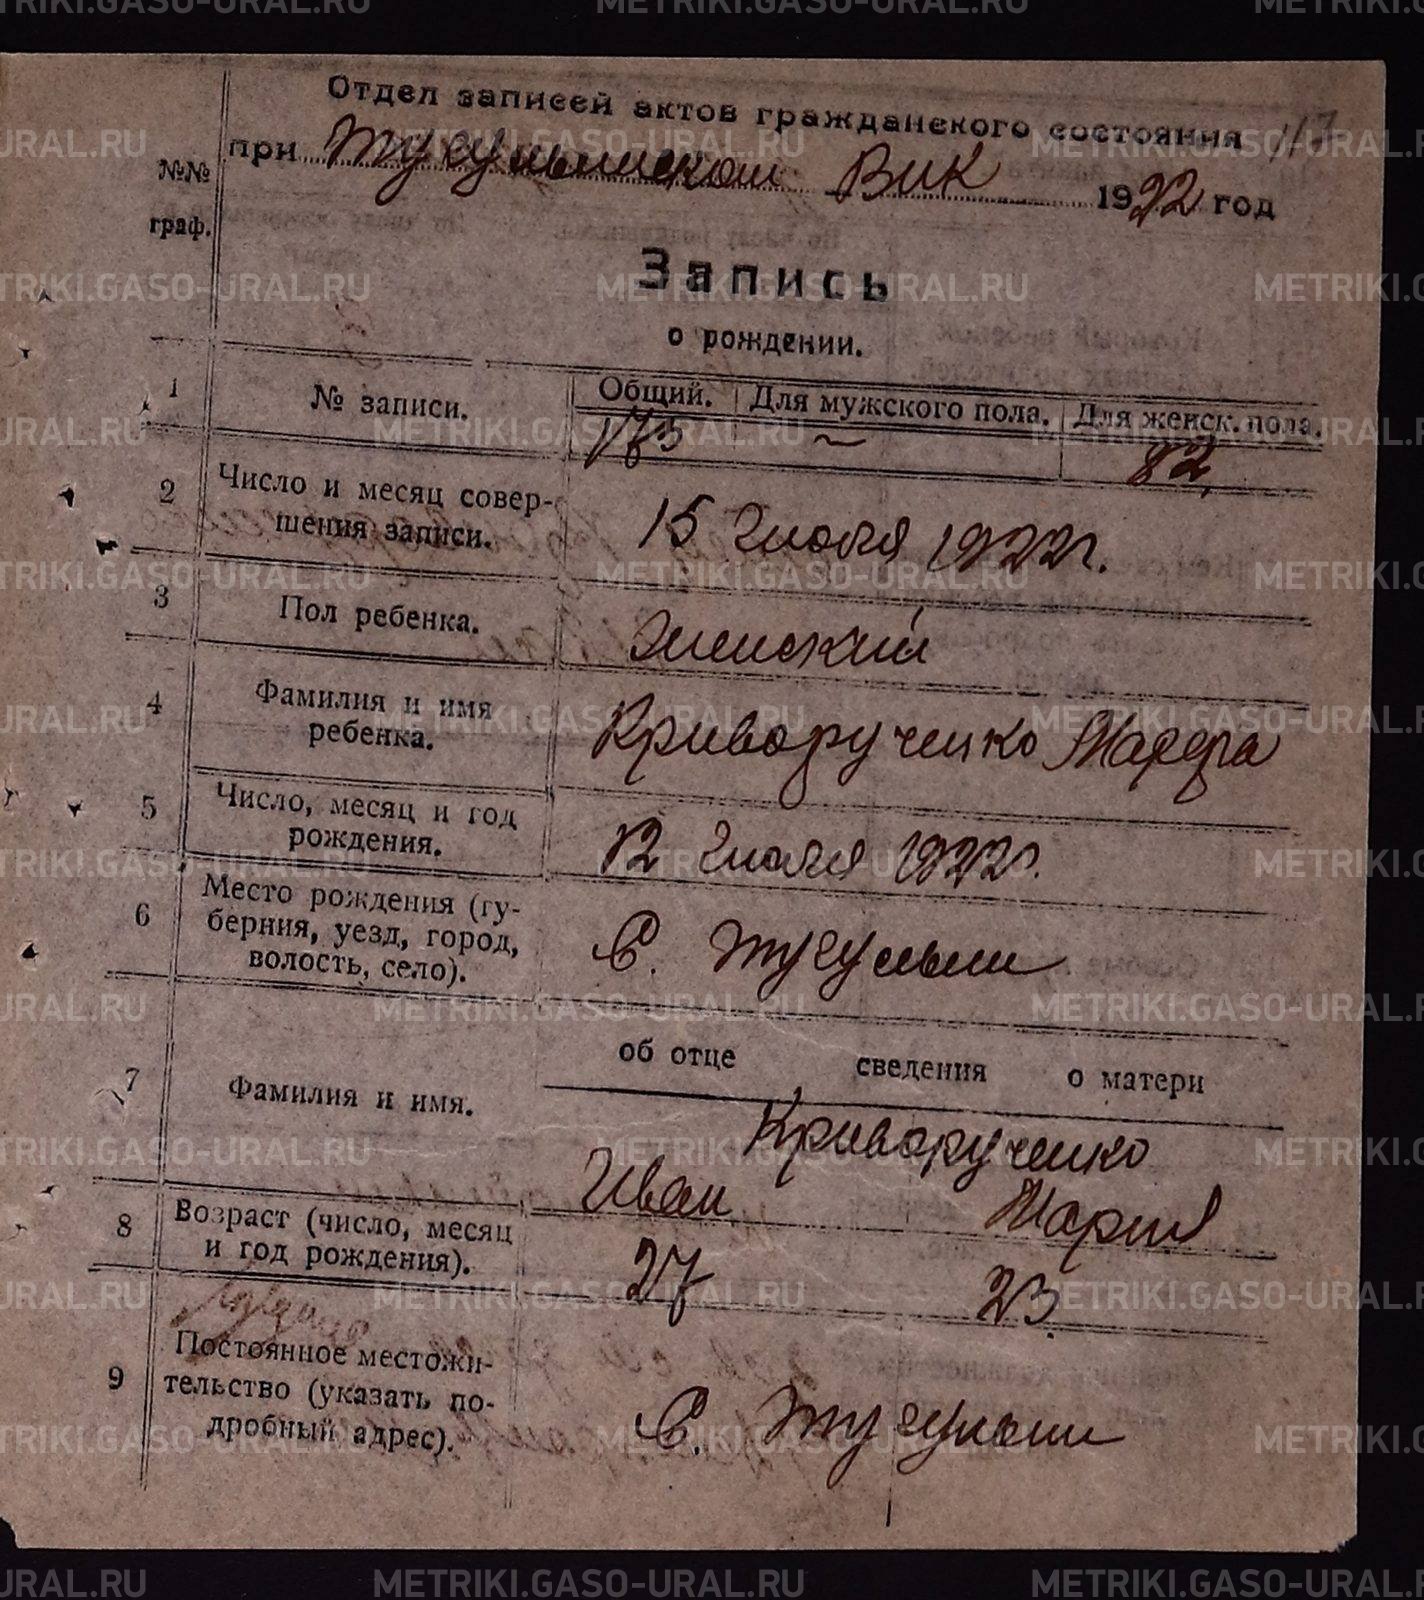 Отдел записей актов гражданского состояния 117
при Тугулымском Вик 1922 год
№№ граф.
Запись
о рождении.
1 № записи. Общий. Для мужского пола. Для женск. пола.
175 ~ 82,
2 Число и месяц совер-
шения записи. 15 Июля 1922 г.
3 Пол ребенка. Женский
4 Фамилия и имя
ребенка. Криворученко Марфа
5 Число, месяц и год
рождения. 12 Июля 1922 г.
6 Место рождения (гу-
берния, уезд, город,
волость, село). С. Тугулым
об отце сведения о матери
7 Фамилия и имя. Криворученко
Иван Мария
8 Возраст (число, месяц
и год рождения). 27 23.
9 Постоянное местожи-
тельство (указать по-
дробный адрес). С. Тугулым
METRIKI.GASO-URAL.RU